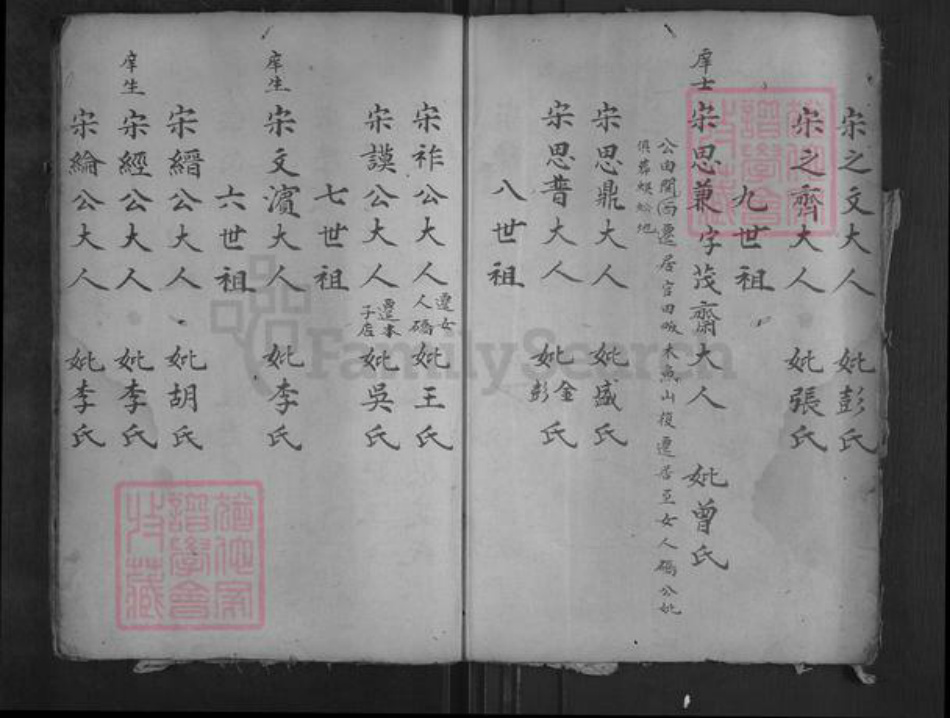 宋之文大人 妣彭氏
宋之齊大人 妣張氏
九世祖
庠士 宋思兼字茂齋大人 妣曾氏
公由閣 遷居官田 木魚山後遷居至女人磡公妣
俱葬蜈蚣地
宋思鼎大人 妣盛氏
宋思普大人 妣金彭氏
八世祖
宋祚公大人 遷女人磡 妣王氏
宋謨公大人 遷本子店 妣吳氏
七世祖
庠生 宋文濱大人 妣李氏
六世祖
宋縉公大人 妣胡氏
庠生 宋經公大人 妣李氏
宋綸公大人 妣李氏
FamilySearch